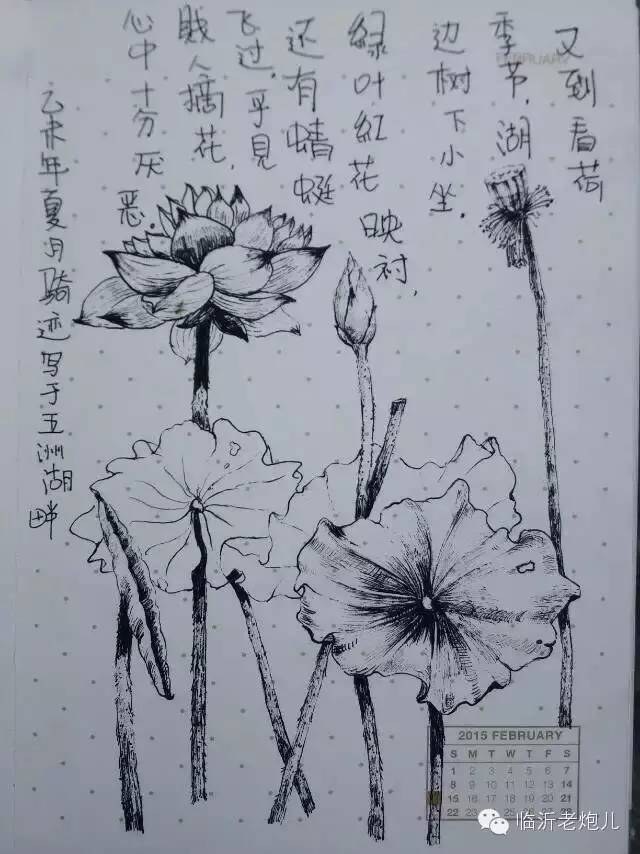 FEBRUARY
又到看荷
季节,湖
边树下小坐.
緑叶紅花映衬,
还有蜻蜓
飞过,乎見
贱人摘花,
心中十分厌恶.
乙未年夏月骑迹写于五洲湖畔
2015 FEBRUARY
S M T W T F S
1 2 3 4 5 6 7
8 9 10 11 12 13 14
15 16 17 18 19 20 21
22 23 28
临沂老炮儿